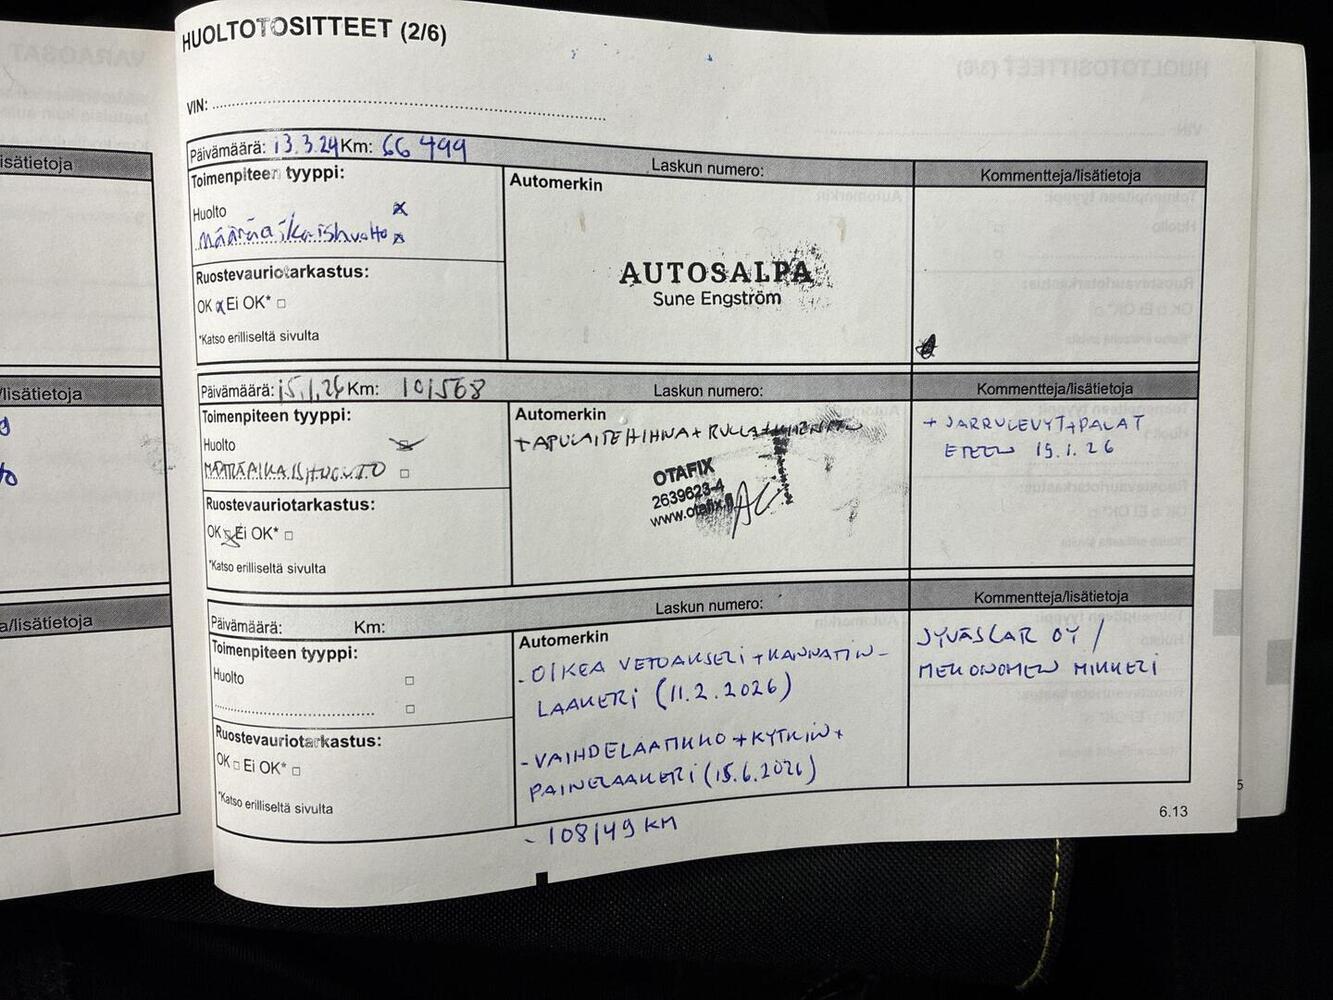 HUOLTOTOSITTEET (2/6)
VIN:
Päivämäärä: 13.3.24 Km: 66 499
Laskun numero:
Kommentteja/lisätietoja
Toimenpiteen tyyppi:
Huolto x
Määräaikaishuolto x
Automerkin
AUTOSALPA
Sune Engström
Ruostevauriotarkastus:
OK x Ei OK* □
*Katso erilliseltä sivulta
Päivämäärä: 15.1.26 Km: 101568
Laskun numero:
Kommentteja/lisätietoja
Toimenpiteen tyyppi:
Huolto
MÄÄRÄAIKAISHUOLTO □
Automerkin
+ APULAITEHIHNA + RULLA +
OTAFIX
2639623-4
www.otafix.fi
+ JARRULEVYT + PALAT
ETEEN 15.1.26
Ruostevauriotarkastus:
OK Ei OK* □
*Katso erilliseltä sivulta
Päivämäärä: Km:
Laskun numero:
Kommentteja/lisätietoja
Toimenpiteen tyyppi:
Huolto □
□
Automerkin
- OIKEA VETOAKSELI + KANNATIN-
LAAKERI (11.2.2026)
- VAIHDELAATIKKO + KYTKIN +
PAINELAAKERI (15.6.2026)
JYVÄSCAR OY /
MEKONOMEN MIKKELI
Ruostevauriotarkastus:
OK □ Ei OK* □
*Katso erilliseltä sivulta
- 108149 KM
6.13
isätietoja
/lisätietoja
a/lisätietoja